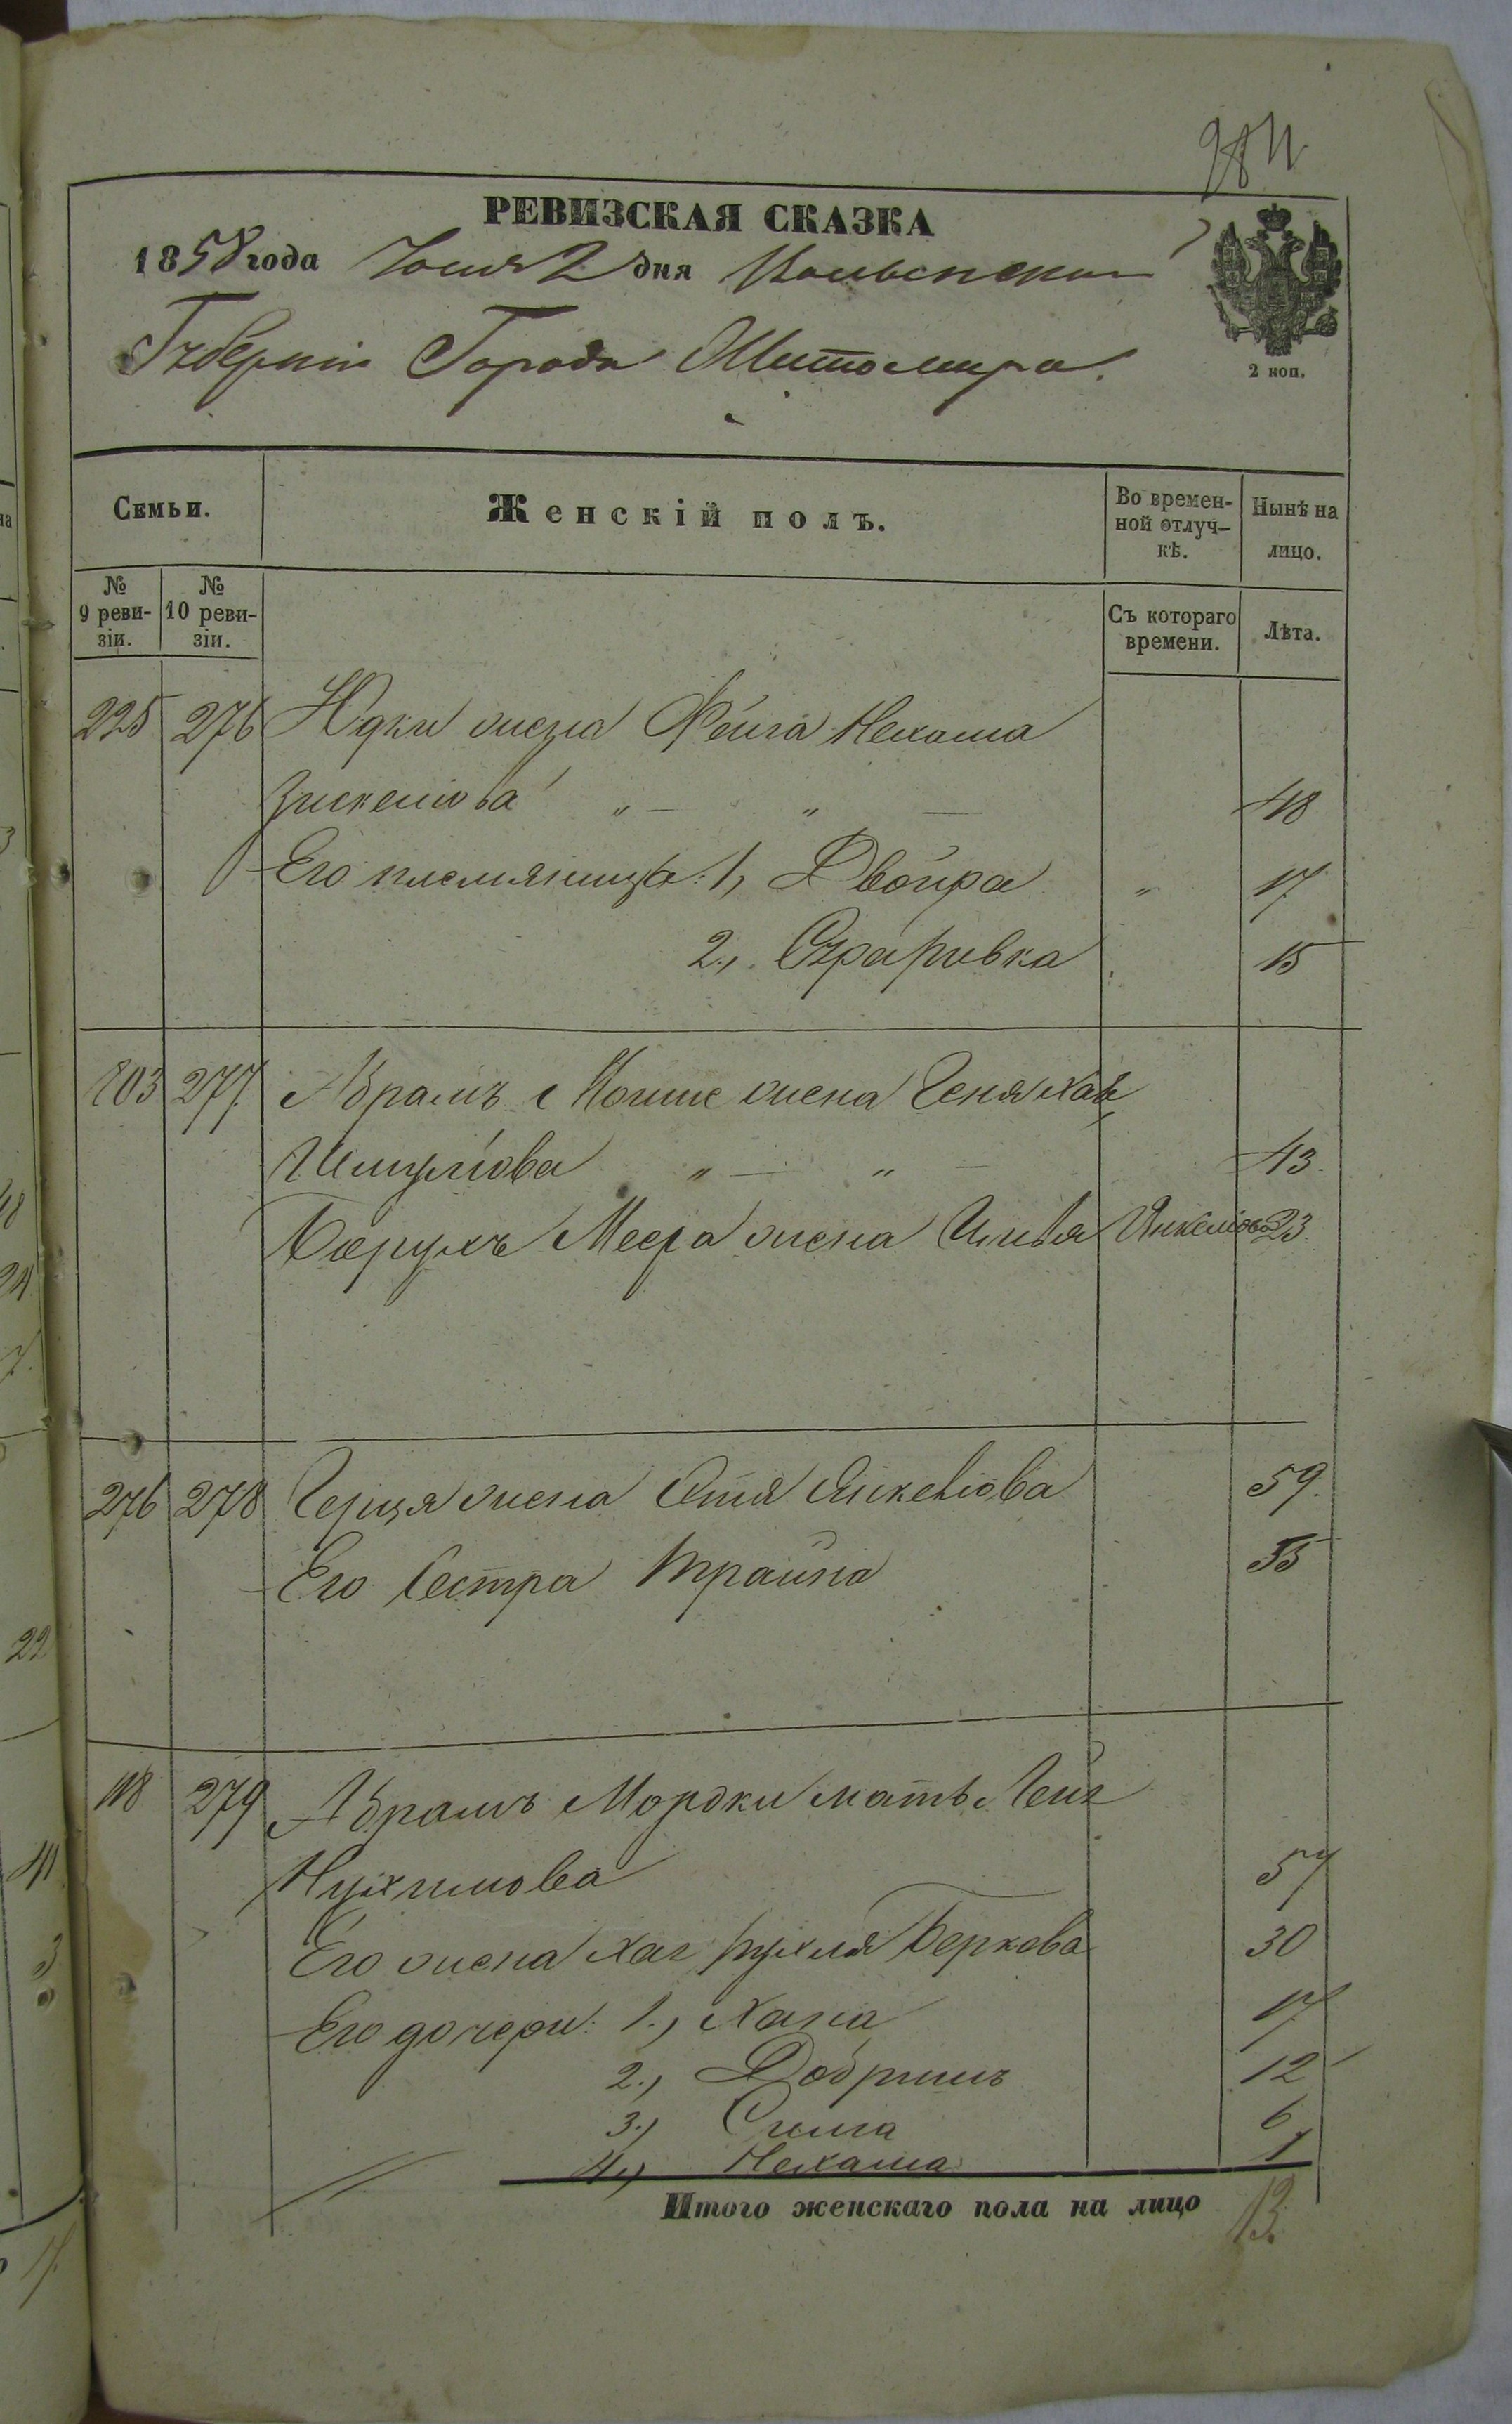 РЕВИЗСКАЯ СКАЗКА
1858 года Іюня 2 дня Волынской
Губерніи Города Житомира.
2 коп.
Семьи. Женскій полъ. Во времен- Нынѣ на
ной отлуч- лицо.
кѣ.
№ №
9 реви- 10 реви- Съ котораго Лѣта.
зіи. зіи. времени.
225 276 Юдки жена Фейга Нехама
Зискелiова " — " — 48
Его племяница: 1, Двойра " 17
2., Сура Ривка 15
203 277 Абрамъ Мошие жена Геня Хая
Шмулiова " — " — 43.
Борухъ Меера жена Янкелiова 23.
276 278 Герця жена Янкелiова 59.
Его Сестра Трайна 55
118 279 Абрамъ Мордки мать
Нухимова 57
Его жена Хая Рухля Беркова 30
Его дочери: 1., Хана 17
2., Добришъ 12
3., Сима 6
4., Нехама 1
Итого женскаго пола на лицо 13.